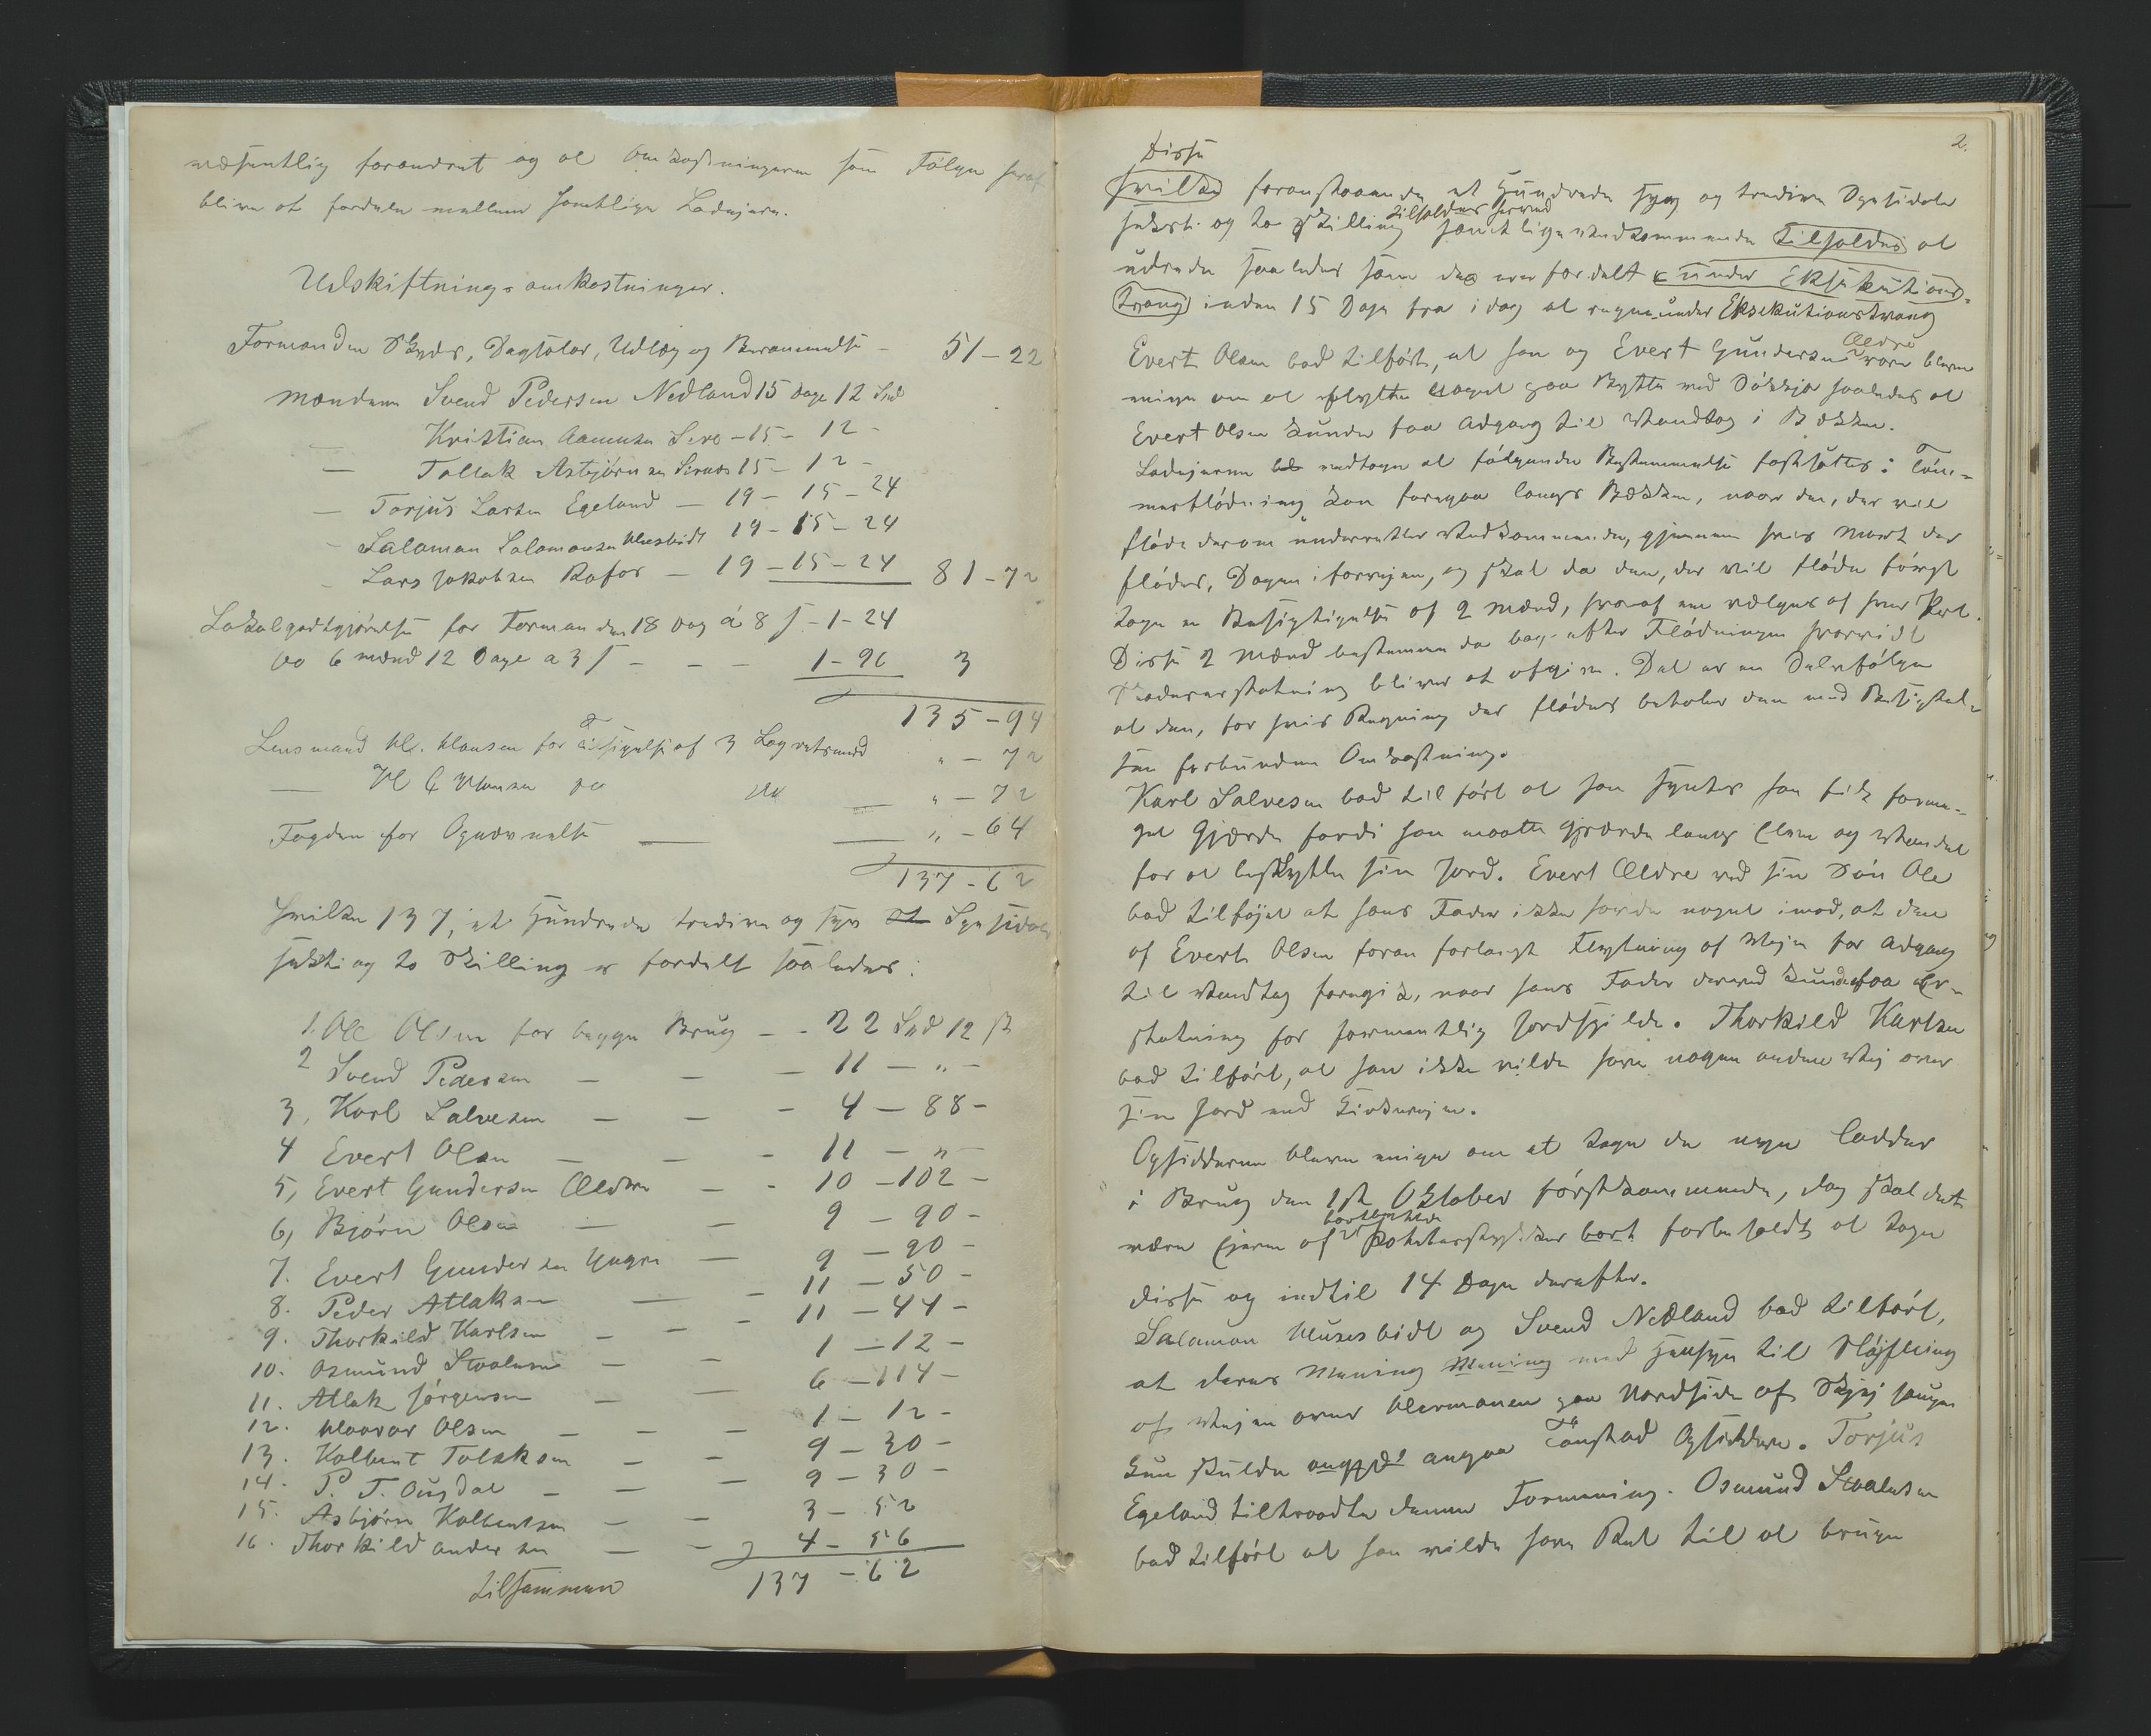 væsentlig forandret og at Omkostningerne som Følge heraf
bliver at fordele mellem samtlige Lodejere.
Udskiftnings omkostninger.
Formanden Skyds, Dagsølar, Udlæg og Berammelse - 51-22
Mændene Svend Pedersen Nedland 15 Dage 12 Spd
— Kristian Aamundsen - 15 - 12 -
— Tallak Asbjørnsen 15 - 12 -
— Torjus Larsen Egeland - 19 - 15 - 24
- Salamon Salamonsen 19 - 15 - 24
- Lars Jakobsen Rafos - 19 - 15 - 24 81-72
Lokalgodtgjørelse for Formanden 18 Dag á 8 ſ - 1-24
do 6 mænd 12 Dage a 3 ſ - - - 1-96 3
135-94
Lensmand Kl. Clausen for Tilsigelse af 3 Lagretsmænd " - 72
— do — " - 72
Fogden for Opnævnelse — — " - 64
137-62
Hvilke 137, et Hundrede tredive og syv Speciedaler
seksti og to Skilling er fordelt saaledes:
1. Ole Olsen for begge Brug - - 22 Spd 12 ß
2 Svend Pedersen - - - 11 - " -
3, Karl Salvesen - - - 4 - 88 -
4 Evert Olsen - - - 11 - " -
5, Evert Gundersen Ældre - - 10 - 102 -
6, Bjørn Olsen - - 9 - 90 -
7. Evert Gundersen Yngre - 9 - 90 -
8. Peder Atlaksen - - 11 - 50 -
9. Thorkild Karlsen - - - 11 - 44 -
10. Osmund Staalesen - - 1 - 12 -
11. Atlak Jørgensen - - 6 - 114 -
12. Haavar Olsen - - - 1 - 12 -
13. Kolbent Tolaksen - - 9 - 30 -
14. P. T. Ougdal - - - 9 - 30 -
15. Asbjørn Kolbentsen - - 3 - 52
16. Thorkild Andersen - - 4 - 56
tilsammen 137 - 62
2.
Disse
hvilke foranstaaende et Hundrede syv og tredive Spesidaler
seksti og to Skilling tilholdes herved samtlige vedkommende tilholdes at
udrede saaledes som de er fordelt under Eksekutions-
tvang inden 15 Dage fra i dag at regne under Eksekutionstvang
Evert Olsen bad tilført, at han og Evert Gundersen Ældre vare bleven
enige om at flytte noget paa Bytte ved saaledes at
Evert Olsen kunde faa Adgang til Vandtag i Bækken.
Lodejerne vedtoge at følgende Bestemmelse fastsættes: Tøm-
merflødning kan foregaa langs Bækken, naar den, der vil
fløde derom underretter Vedkommende, gjennem hvis Mark der
flødes, Dagen i forvejen, og skal da den, der vil fløde først
tage en Besigtigelse af 2 Mænd, hvoraf en vælges af hver Part.
Disse 2 Mænd bestemme da bag-efter Flødningen hvorvidt
Skadeserstatning bliver at afgive. Det er en Selvfølge
at den, for hvis Regning der flødes betaler den med Besigtel-
sen forbundne Omkostning.
Karl Salvesen bad tilført at han syntes han fik forme-
get Gjærde fordi han maatte gjærde langs Elven og Vandet
for at beskytte sin Jord. Evert Ældre ved sin Søn Ole
bad tilføjet at hans Fader ikke havde noget imod, at den
af Evert Olsen foran forlangte Flytning af Vejen for Adgang
til Vandtag foregik, naar hans Fader derved kunde faa Er-
statning for formentlig Jordspilde. Thorkild Karlsen
bad tilført, at han ikke vilde have nogen anden Vej over
sin Jord end Kirkevejen.
Opsidderne bleve enige om at tage de nye Lodder
i Brug den 1ste Oktober førstkommende, dog skal det
være Ejerne af Potetesstykker bort forbeholdt at tage
disse og indtil 14 Dage derefter.
Salamon og Svend Nedland bad tilført,
at deres Mening Mening med Hensyn til Sløjfning
af Vejen over paa Nordside af
kun skulde angaa Opsiddere. Torjus
Egeland tiltraadte denne Formening. Osmund Staalesen
bad tilført at han vilde have Ret til at bruge